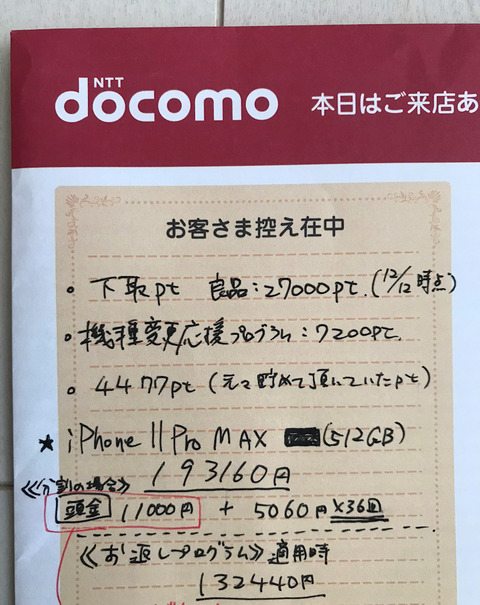 NTT
docomo 本日はご来店あ
お客さま控え在中
。下取pt 良品:27000pt.(12/12時点)
。機種変更応援プログラム:7200pt.
。4477pt(元々貯めて頂いていたpt)
★iPhone 11 Pro MAX (512GB)
≪分割の場合≫ 193160円
頭金 11000円 + 5060円×36回
≪お返しプログラム≫適用時
132440円